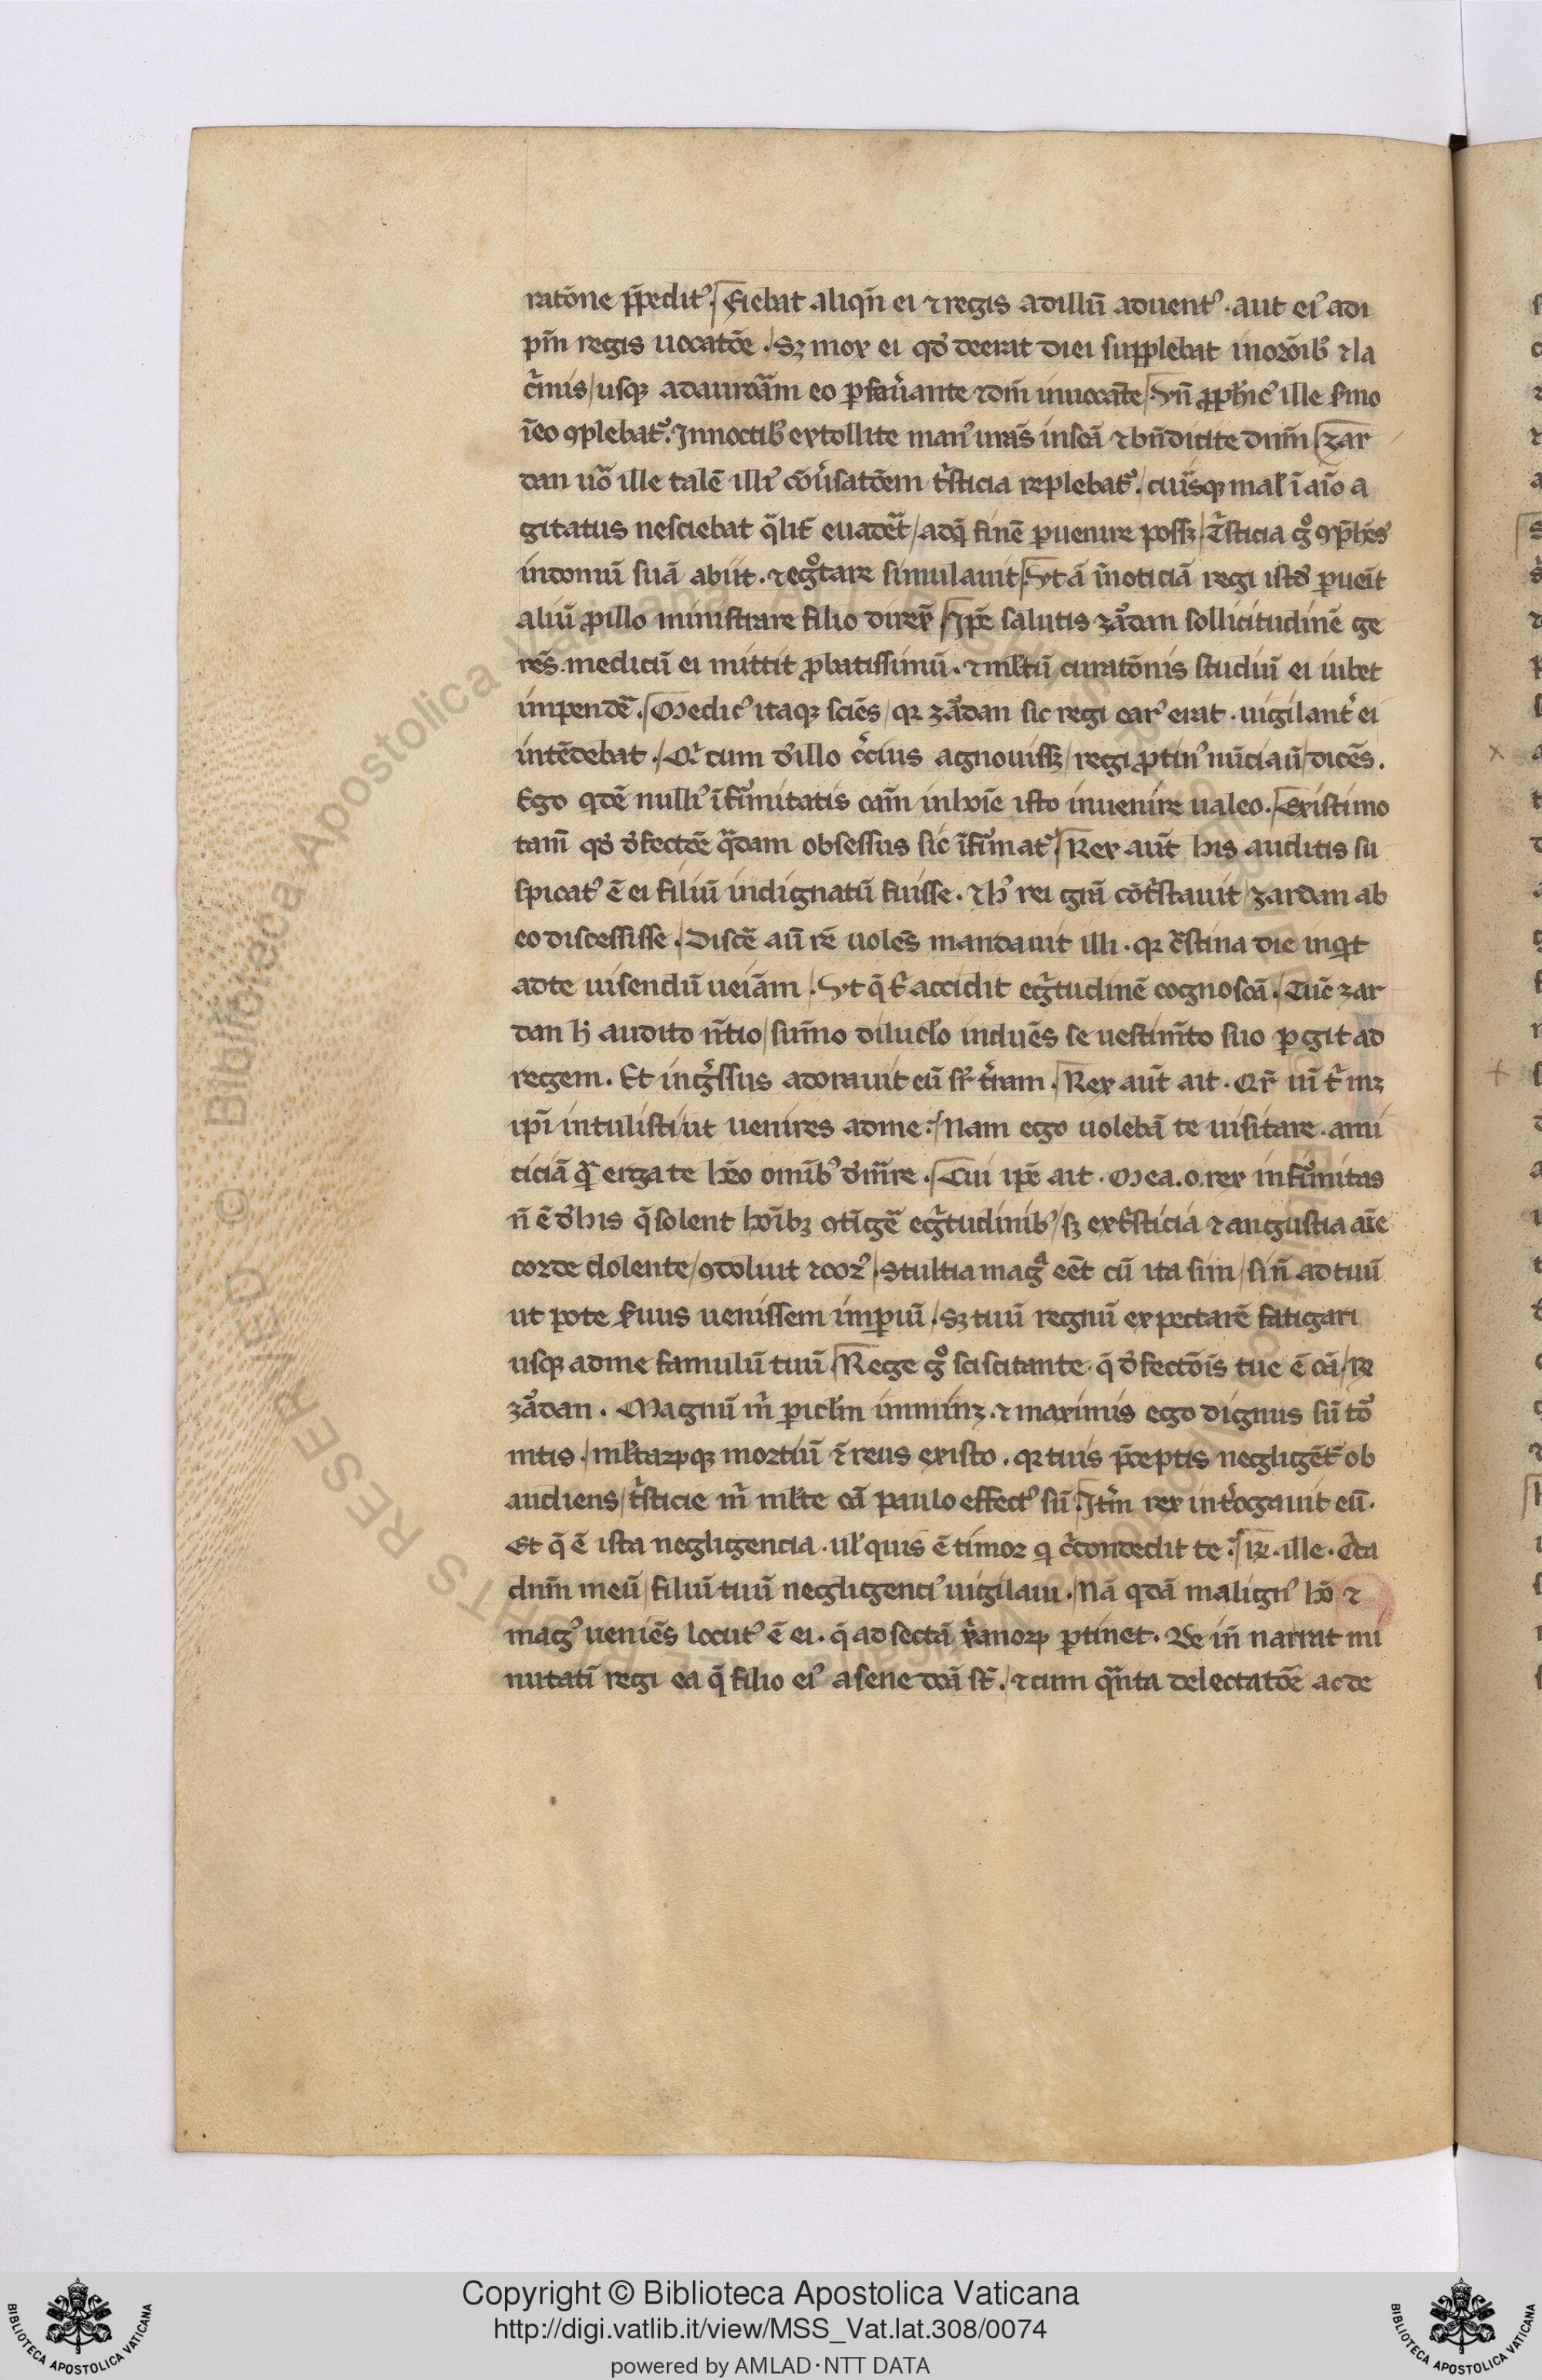 ratōne p̄pedit᷒. Fiebat aliqn̄ ei ⁊ regis ad illū aduent᷒. aut ei᷒ ad i
pīn regis uocatōe. Sꝫ mox ei qd̓ deerat diei supplebat in or̄oib᷒ ⁊ la
c̓mis / usqꝫ ad aurorā eo ꝑseu̓ante ⁊ dm̄ inuocāte / Vn̄ ꝓph̓ic᷒ ille s̓mo
ī eo ꝯplebat᷒. In noctib᷒ extollite man᷒ ur̄as in sc̄a ⁊ bn̄dicite dnm̄ zar
dan uo᷒ ille talē illi᷒ cōu̓satōem t̓sticia replebat᷒. / cui᷒usqꝫ mal̓ ī aīo a
gitatus nesciebat q̓lit̓ euadēt / ad q̄ finē ꝑuenire possꝫ / T̓sticia gͦ ꝯp̄hēs᷒
in domū suā abiit. ⁊ egͦtare simulauit / Vt ā in noticiā regi istd̓ ꝑueīt
aliū ꝓ illo ministrare filio direx̄ / Ip̄e salutis zāͦdan sollicitudinē ge
rēs medicū ei mittit ꝓbatissimū. ⁊ ml̓tū curatōnis studiū ei iubet
impendē. Medic᷒ itaqꝫ sciēs / qꝛ zāͦdan sic regi car᷒ erat. uigilant̓ ei
intēdebat. / Qͥ cum d̓ illo c̓cius agnouissꝫ / regi ꝓtin᷒ nūciauͥ / dicēs.
Ego qdē nulli᷒ īfirmitatis cām in hoīe isto inuenire ualeo. Existimo
tam̄ qd̓ d̓fectōe q̓dam obsessus sic īfirmat᷒. Rex aut̄ his auditis su
spicat᷒ ē ei filiū indignatū fuisse. ⁊ h᷒ rei grā cōt̓stauit / zardan ab
eo discessisse. Discē aū rē uolēs mandauit illi. qꝛ c̓stina die inqͥt
ad te uisendū ueiām / Vt q̄ t̓ accidit egͥtudinē cognoscā. / Tūc zar
dan h̓ audito nt̄io / sum̄o diluclo̓ induēs se uestim̄to suo ꝑgit ad
regem. Et ing̓ssus adorauit eū sr̓ t̓ram. Rex aut̄ ait. Qr̄ uī t̓ mꝫ
ip̄i intulisti / ut uenires ad me. / Nam ego uolebā te uisitare. ami
ciciā q̓ erga te hēo omīb᷒ d̓mr̄e. Cui ip̄e ait. Mea. o. rex infirmitas
n̄ ē d̓ his q̄ solent hoībꝫ ꝯtīgē egͥtudinib᷒ / sꝫ ex t̓sticia ⁊ angustia aīe
corde dolente / ꝯdoluit ⁊ cor᷒ / Stultia magᷓ eēt cū ita sim / si n̄ ad tuū
ut pote s̓uus uenissem impiū. / Sꝫ tuū regnū expectarē fatigari
usqꝫ ad me famulū tuū / Rege gͦ sciscitante. q̄ d̓fectōis tue ē cā / ꝶ
zāͦdan. Magnū m̓ ꝑiclm̄ imminꝫ. ⁊ maximis ego dignus sū to᷒
mtis. / ml̓taꝝqꝫ mortiū ē reus existo. qꝛ tuis p̄ceptis negligēt̓ ob
audiens / t̓sticie m̓ ml̓te cā paulo effect᷒ sū / It̓m rex int̓ogauit eū.
Et q̄ ē ista negligencia. ul̓ quis ē timor q c̓condedit te. ꝶ. ille. C̓ca
dnm̄ meū / filiū tuū negligenci᷒ uigilaui. / Nā qdā malign᷒ hō ⁊
mag᷒ ueniēs locut᷒ ē ei. q̄ ad sectā x̓anoꝝ ꝑtinet. De in̄ narrat mi
nutatī regi ea q̄ filio ei᷒ a sene dc̄ā st̄. / ⁊ cum q̓nta delectatōe ac de
Copyright © Biblioteca Apostolica Vaticana
http://digi.vatlib.it/view/MSS_Vat.lat.308/0074
powered by AMLAD·NTT DATA
BIBLIOTECA APOSTOLICA VATICANA
BIBLIOTECA APOSTOLICA VATICANA